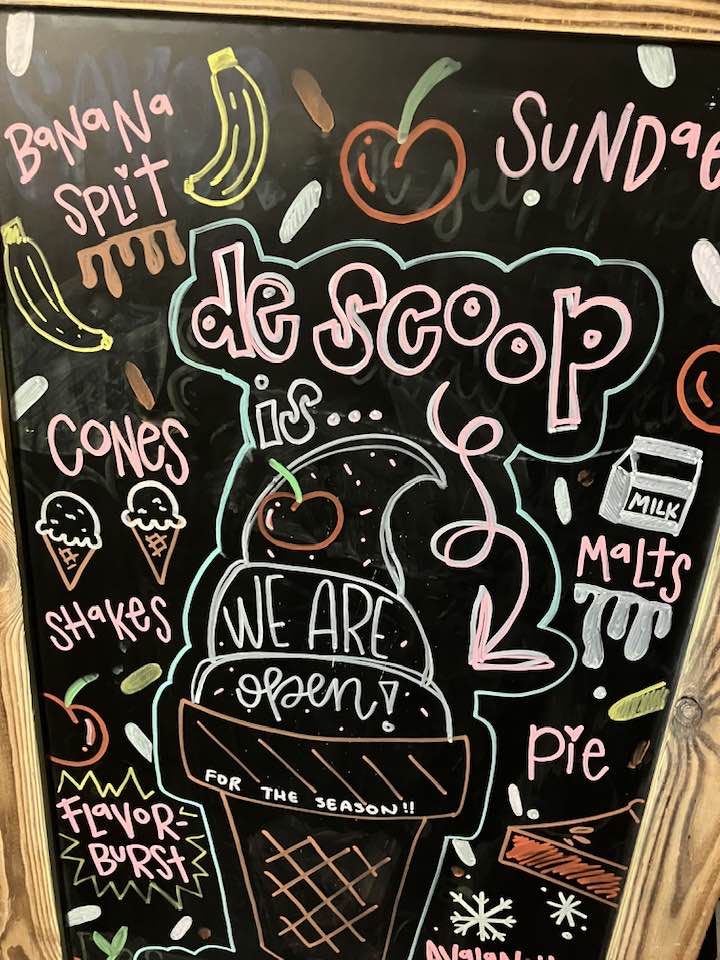 BaNaNa
SPLiT
SUNDae
de scoop
is...
CONES
MILK
MaLts
WE ARE
open!
SHaKES
Pie
FOR THE SEASON!!
FLavOR-
BURSt